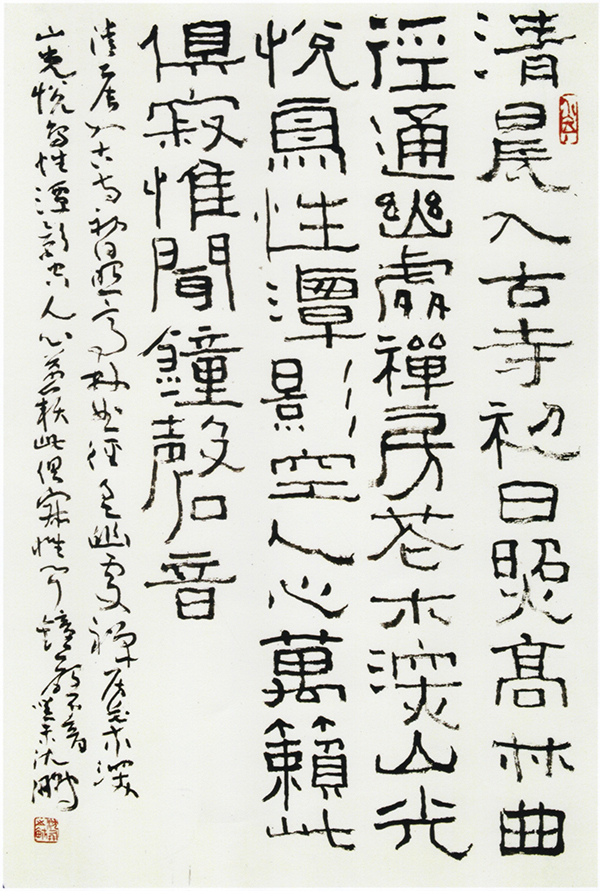 清晨入古寺初日照高林曲
徑通幽處禪房花木深山光
悅鳥性潭影空人心萬籟此
俱寂惟聞鐘磬音
清晨入古寺初日照高林曲徑通幽處禪房花木深
山光悅鳥性潭影空人心萬籟此俱寂惟聞鐘磬音癸未沈鵬